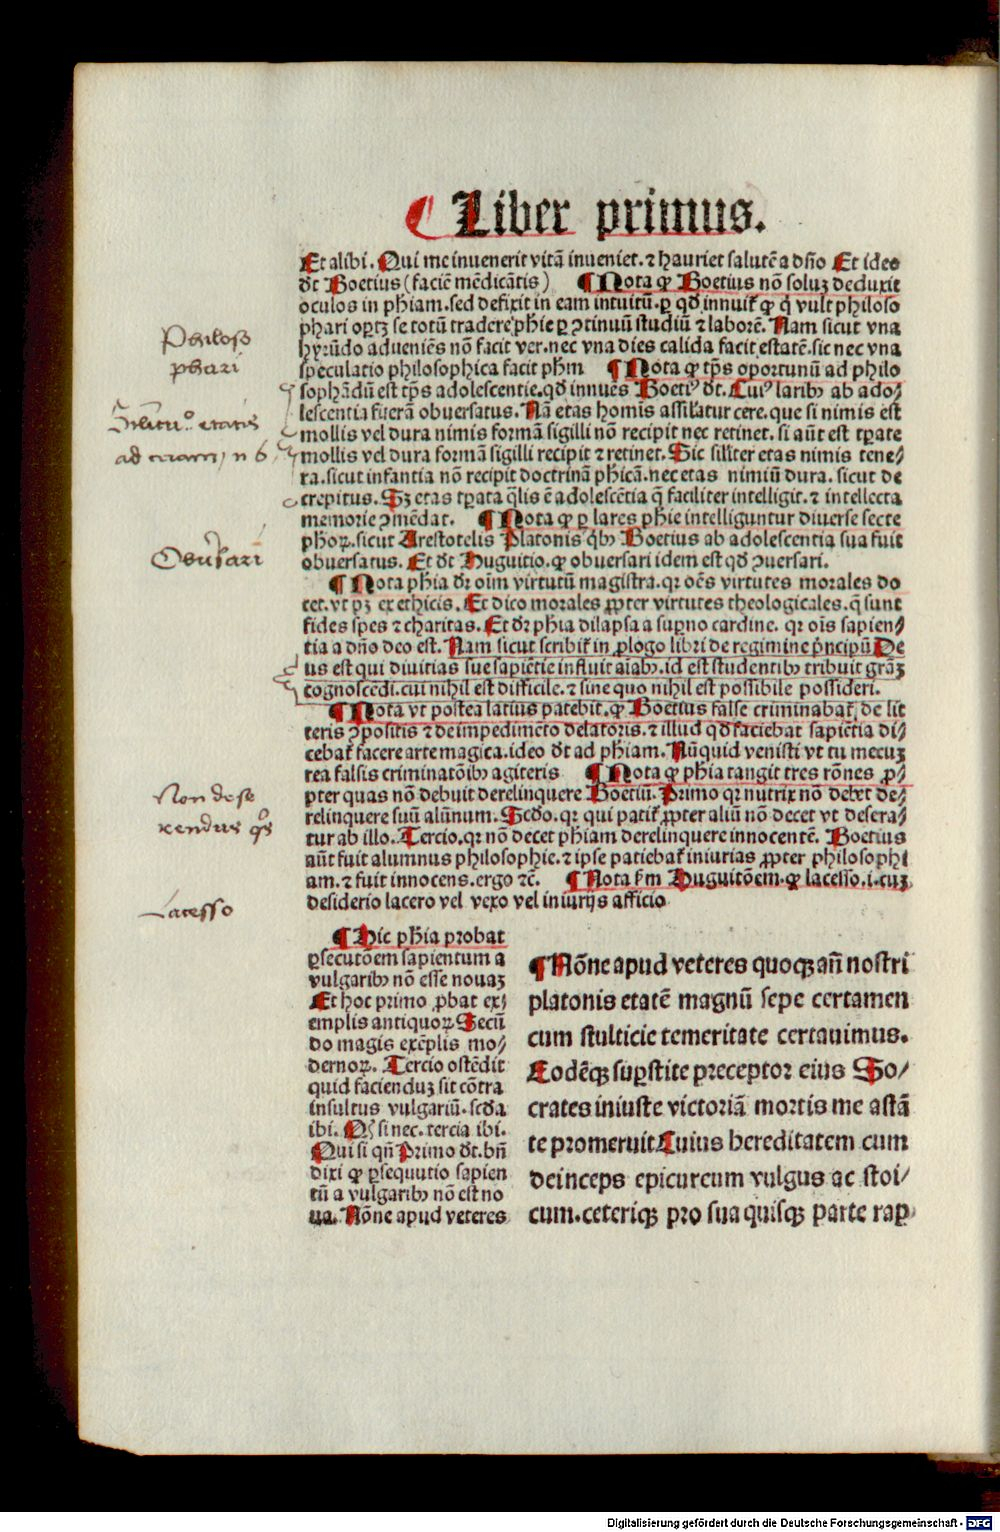 Liber primus.
Et alibi. Qui me inuenerit vitā inueniet. ⁊ hauriet salutē a dño Et ideo
dt Boetius (faciē mēdicātis) ¶ Nota ꝙ Boetius nō soluꝫ deduxit
oculos in pħiam. sed defixit in eam intuitū. ꝑ qđ innuit ꝙ q̇ vult philoso
phari oportꝫ se totū tradere pħie ꝑ ↄtinuū studiū ⁊ laborē. Nam sicut vna
hyrūdo adueniēs nō facit ver. nec vna dies calida facit estatē. sic nec vna
speculatio philosophica facit pħm ¶ Nota ꝙ tꝑs oportunū ad philo
sophādū est tꝑs adolescentie. qđ innuēs Boetiꝰ dt. Cuiꝰ laribꝫ ab ado⸗
lescentia fuerā obuersatus. Nā etas homīs assilatur cere. que si nimis est
mollis vel dura nimis formā sigilli nō recipit nec retinet. si aūt est tꝑate
mollis vel dura formā sigilli recipit ⁊ retinet. Sic siliter etas nimis tene⸗
ra. sicut infantia nō recipit doctrinā pħicā. nec etas nimiū dura. sicut de
crepitus. Sꝫ etas tꝑata q̄lis ē adolescētia q̄ faciliter intelligit. ⁊ intellecta
memorie ↄmēdat. ¶ Nota ꝙ ꝑ lares pħie intelliguntur diuerse secte
pħoꝝ. sicut Arestotelis Platonis q̇bꝫ Boetius ab adolescentia sua fuit
obuersatus. Et dt Huguitio. ꝙ obuersari idem est qđ ↄuersari.
¶ Nota pħia dr oīm virtutū magistra. qr oēs virtutes morales do
cet. vt pꝫ ex ethicis. Et dico morales ꝓpter virtutes theologicales. q̄ sunt
fides spes ⁊ charitas. Et dr pħia dilapsa a suꝑno cardine. qr oīs sapien⸗
tia a dño deo est. Nam sicut scribit̄ in ꝓlogo libri de regimine pͥncipū De
us est qui diuitias sue sapiētie influit aīabꝫ. id est studentibꝫ tribuit gr̄aꝫ
cognoscēdi. cui nihil est difficile. ⁊ sine quo nihil est possibile possideri.
¶ Nota vt postea latius patebit. ꝙ Boetius false criminabat̄ de lit
teris ↄpositis ⁊ de impedimēto delatoris. ⁊ illud qđ faciebat sapiētia di⸗
cebat̄ facere arte magica. ideo dt ad pħiam. Nūquid venisti vt tu mecuꝫ
rea falsis criminatōibꝫ agiteris ¶ Nota ꝙ pħia tangit tres rōnes ꝓ⸗
pter quas nō debuit derelinquere Boetiū. Primo qr nutrix nō debet de⸗
relinquere suū alūnum. Scdo. qr qui patit̄ ꝓpter aliū nō decet vt desera⸗
tur ab illo. Tercio. qr nō decet pħiam derelinquere innocentē. Boetius
aūt fuit alumnus philosophie. ⁊ ipse patiebat̄ iniurias ꝓpter philosophi
am. ⁊ fuit innocens. ergo ⁊c̄. ¶ Nota ẜm Huguitōem. ꝙ lacesso. i. cuꝫ
desiderio lacero vel vexo vel iniurijs afficio
¶ Hic pħia probat
ꝑsecutōem sapientum a
vulgaribꝫ nō esse nouaꝫ
Et hoc primo ꝓbat ex⸗
emplis antiquoꝝ Secū
do magis exēplis mo⸗
dernoꝝ. Tercio ostēdit
quid facienduꝫ sit cōtra
insultus vulgariū. scđa
ibi. Qđ si nec. tercia ibi.
Qui si qn̄ Primo dt. bn̄
dixi ꝙ ꝑsequutio sapien
tū a vulgaribꝫ nō est no
ua. Nōne apud veteres
¶ Nōne apud veteres quoqꝫ añ nostri
platonis etatē magnū sepe certamen
cum stulticie temeritate certauimus.
Eodēqꝫ suꝑstite preceptor eius So⸗
crates iniuste victoriā mortis me astā
te promeruit Cuius hereditatem cum
deinceps epicureum vulgus ac stoi⸗
cum. ceteriqꝫ pro sua quisqꝫ parte rap
Philoso
phari
etatis
ad ceram
Obuersari
Non dese
rendus
Lacesso
Digitalisierung gefördert durch die Deutsche Forschungsgemeinschaft - DFG